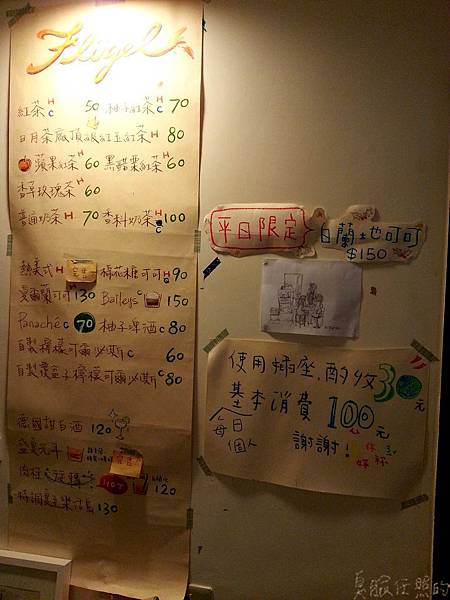 Fligel
紅茶 H C 50 柚子紅茶 H C 70
日月茶廠頂級紅玉紅茶 H 80
蘋果紅茶 H 60 黑醋栗紅茶 H 60
香草玫瑰茶 H 60
普通奶茶 H 70 香料奶茶 H C 100
熱美式 H 棉花糖可可 H 90
愛爾蘭可可 H 130 Baileys C 150
Panaché C 70 柚子啤酒 C 80
自製檸檬可爾必斯 C 60
自製覆盆子檸檬可爾必斯 C 80
德國甜白酒 120
120
130
平日限定
白蘭地可可
$150
使用插座,酌收30元
基本消費 100元
每日
個人
謝謝!